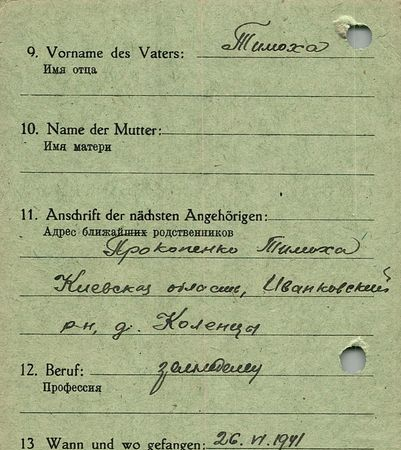 9. Vorname des Vaters: Тимоха
Имя отца
10. Name der Mutter:
Имя матери
11. Anschrift der nächsten Angehörigen:
Адрес ближайших родственников
Прокопенко Тимоха
Киевская область, Иванковский
р-н, д. Коленца
12. Beruf:
Профессия
13 Wann und wo gefangen: 26. VI. 1941